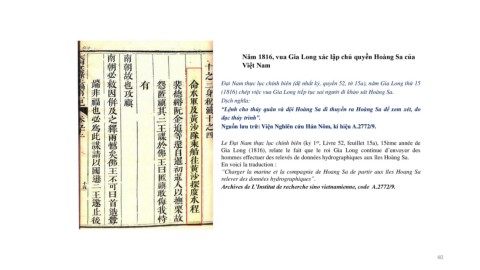 十之三身稅錢十之四
命水軍及黃沙隊乘船往黃沙探度水程
裴德縉阮金追等還自暹初暹人以撫棠故
怨匿禛其二王謀於佛王曰匿禛敢侮我
有
南朝故也攻
南朝必救因併及之釋兩憾矣佛王不可曰首造釁
端非福也必為此謀請以國還二王遂止後
Năm 1816, vua Gia Long xác lập chủ quyền Hoàng Sa của
Việt Nam
Đại Nam thực lục chính biên (đệ nhất kỷ, quyển 52, tờ 15a), năm Gia Long thứ 15
(1816) chép việc vua Gia Long tiếp tục sai người đi khảo sát Hoàng Sa.
Dịch nghĩa:
"Lệnh cho thủy quân và đội Hoàng Sa đi thuyền ra Hoàng Sa để xem xét, đo
đạc thủy trình".
Nguồn lưu trữ: Viện Nghiên cứu Hán Nôm, kí hiệu A.2772/9.
Le Đại Nam thực lục chính biên (ký 1er, Livre 52, feuillet 15a), 15ème année de
Gia Long (1816), relate le fait que le roi Gia Long continue d'envoyer des
hommes effectuer des relevés de données hydrographiques aux îles Hoàng Sa.
En voici la traduction :
"Charger la marine et la compagnie de Hoang Sa de partir aux îles Hoang Sa
relever des données hydrographiques".
Archives de L'Institut de recherche sino vietnamienne, code A.2772/9.
40